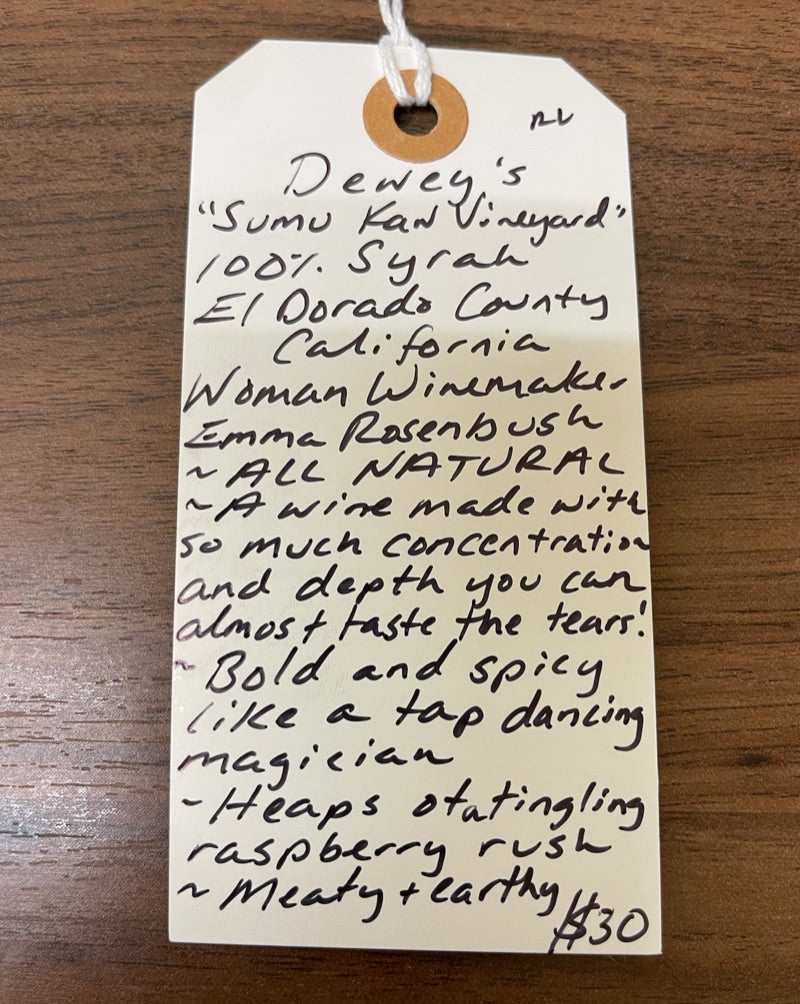 RL
Dewey's
"Sumu Kaw Vineyard"
100% Syrah
El Dorado County
California
Woman Winemaker
Emma Rosenbush
~ ALL NATURAL
~ A wine made with
so much concentration
and depth you can
almost taste the tears!
~ Bold and spicy
like a tap dancing
magician
~ Heaps of a tingling
raspberry rush
~ Meaty + earthy
$30